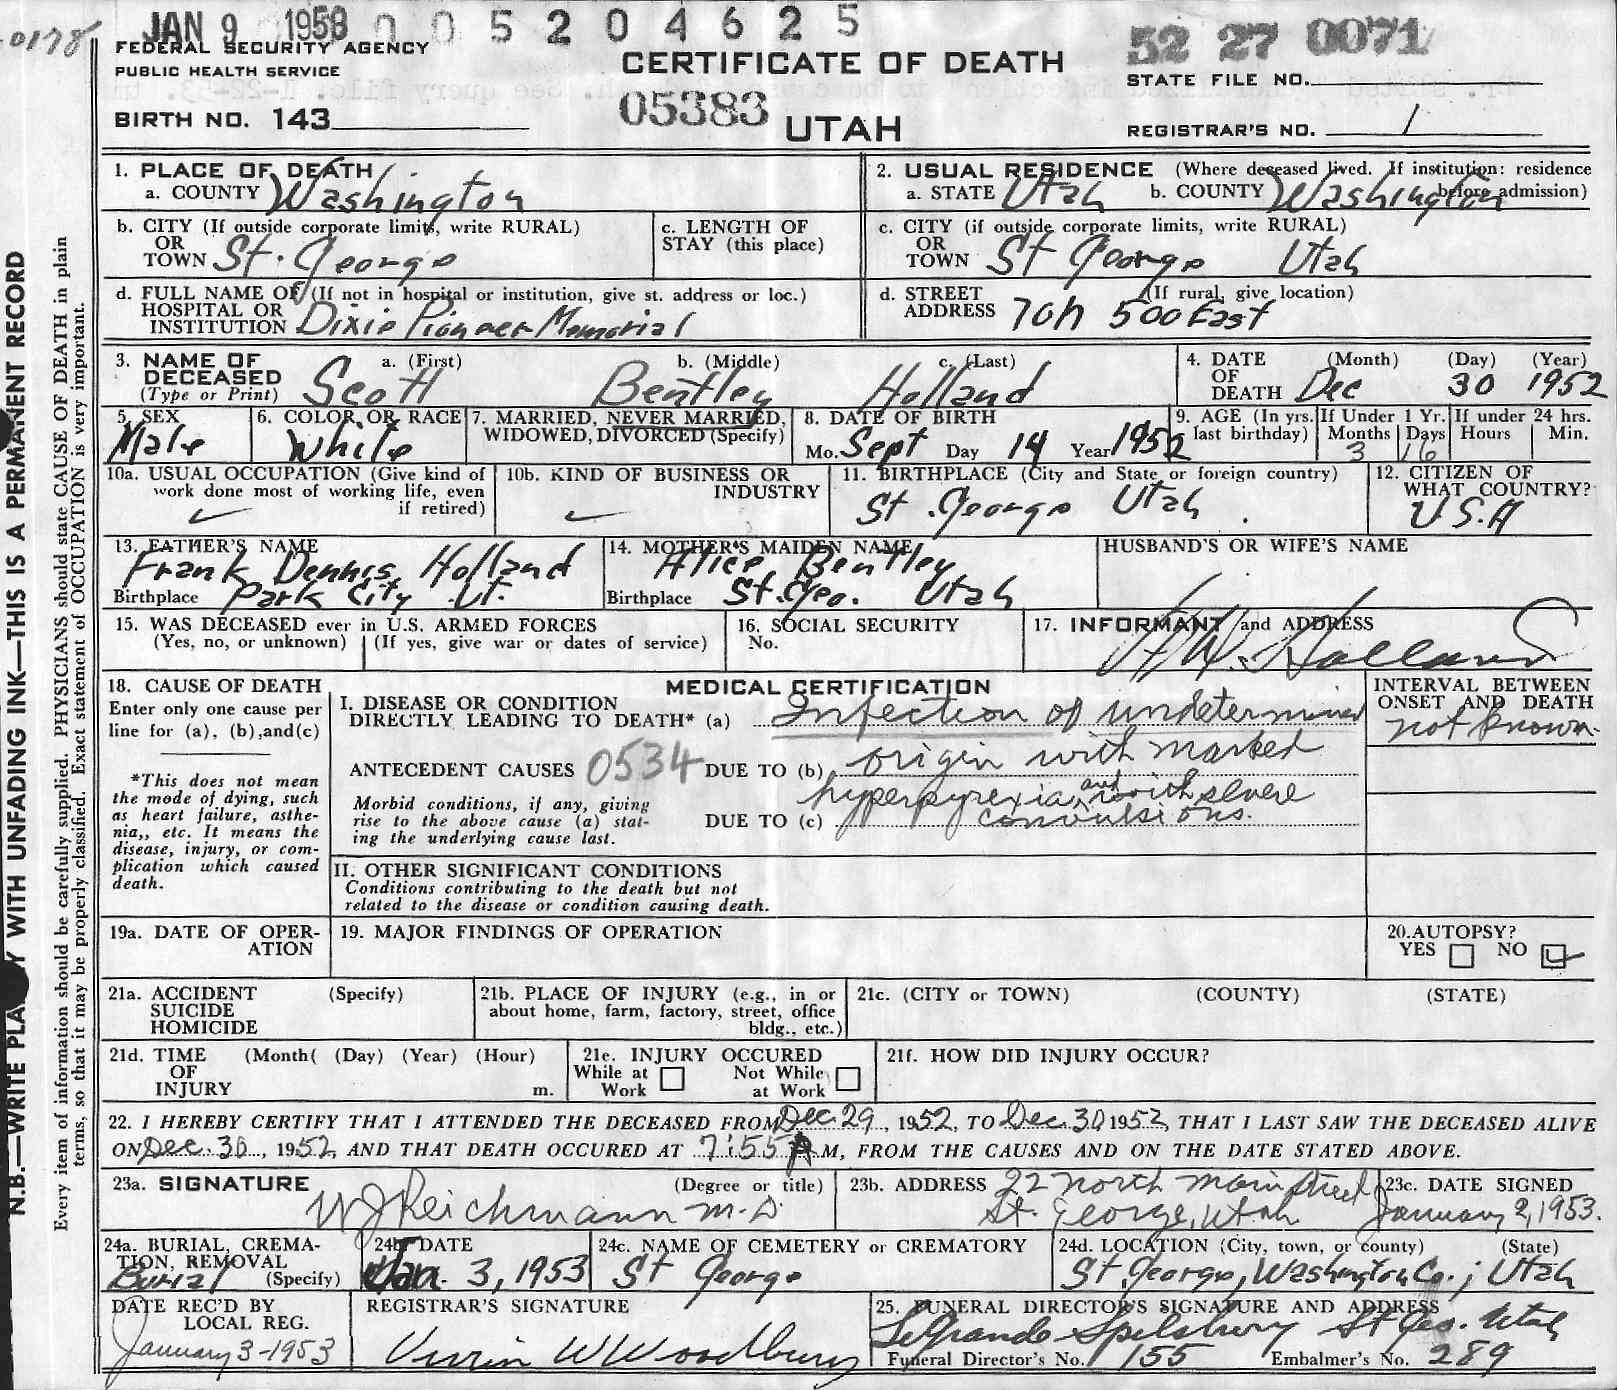 0178
JAN 9 1953 0 0 5 2 0 4 6 2 5
52 27 0071
FEDERAL SECURITY AGENCY
PUBLIC HEALTH SERVICE
CERTIFICATE OF DEATH
STATE FILE NO.
BIRTH NO. 143
05383
UTAH
REGISTRAR'S NO. 1
N.B.—WRITE PLA Y WITH UNFADING INK—THIS IS A PERMANENT RECORD
Every item of information should be carefully supplied. PHYSICIANS should state CAUSE OF DEATH in plain
terms, so that it may be properly classified. Exact statement of OCCUPATION is very important.
1. PLACE OF DEATH
a. COUNTY Washington
2. USUAL RESIDENCE (Where deceased lived. If institution: residence
before admission)
a. STATE Utah b. COUNTY Washington
b. CITY (If outside corporate limits, write RURAL)
OR
TOWN St. George
c. LENGTH OF
STAY (this place)
c. CITY (if outside corporate limits, write RURAL)
OR
TOWN St George Utah
d. FULL NAME OF (If not in hospital or institution, give st. address or loc.)
HOSPITAL OR
INSTITUTION Dixie Pioneer Memorial
d. STREET (If rural, give location)
ADDRESS 70N 500 East
3. NAME OF
DECEASED
(Type or Print)
a. (First) b. (Middle) c. (Last)
Scott Bentley Holland
4. DATE
OF
DEATH
(Month) (Day) (Year)
Dec 30 1952
5. SEX
Male
6. COLOR OR RACE
White
7. MARRIED, NEVER MARRIED,
WIDOWED, DIVORCED (Specify)
8. DATE OF BIRTH
Mo. Sept Day 14 Year 1952
9. AGE (In yrs.
last birthday)
If Under 1 Yr.
Months Days
3 16
If under 24 hrs.
Hours Min.
10a. USUAL OCCUPATION (Give kind of
work done most of working life, even
if retired)
10b. KIND OF BUSINESS OR
INDUSTRY
11. BIRTHPLACE (City and State or foreign country)
St. George Utah
12. CITIZEN OF
WHAT COUNTRY?
U.S.A
13. FATHER'S NAME
Frank Dennis Holland
Birthplace Park City Ut.
14. MOTHER'S MAIDEN NAME
Alice Bentley
Birthplace St. Geo. Utah
HUSBAND'S OR WIFE'S NAME
15. WAS DECEASED ever in U.S. ARMED FORCES
(Yes, no, or unknown) (If yes, give war or dates of service)
16. SOCIAL SECURITY
No.
17. INFORMANT and ADDRESS
Holland
18. CAUSE OF DEATH
Enter only one cause per
line for (a), (b),and(c)
*This does not mean
the mode of dying, such
as heart failure, asthe-
nia,, etc. It means the
disease, injury, or com-
plication which caused
death.
MEDICAL CERTIFICATION
I. DISEASE OR CONDITION
DIRECTLY LEADING TO DEATH* (a) Infection of undetermined
ANTECEDENT CAUSES 0534 DUE TO (b) origin with marked
hyperpyrexia, and with severe
Morbid conditions, if any, giving
rise to the above cause (a) stat-
ing the underlying cause last.
DUE TO (c) convulsions.
INTERVAL BETWEEN
ONSET AND DEATH
not known.
II. OTHER SIGNIFICANT CONDITIONS
Conditions contributing to the death but not
related to the disease or condition causing death.
19a. DATE OF OPER-
ATION
19. MAJOR FINDINGS OF OPERATION
20.AUTOPSY?
YES NO
21a. ACCIDENT (Specify)
SUICIDE
HOMICIDE
21b. PLACE OF INJURY (e.g., in or
about home, farm, factory, street, office
bldg., etc.)
21c. (CITY or TOWN) (COUNTY) (STATE)
21d. TIME (Month( (Day) (Year) (Hour)
OF
INJURY m.
21e. INJURY OCCURED
While at Not While
Work at Work
21f. HOW DID INJURY OCCUR?
22. I HEREBY CERTIFY THAT I ATTENDED THE DECEASED FROM Dec. 29, 1952, TO Dec. 30 1952, THAT I LAST SAW THE DECEASED ALIVE
ON Dec. 30, 1952, AND THAT DEATH OCCURED AT 7:55 A M, FROM THE CAUSES AND ON THE DATE STATED ABOVE.
23a. SIGNATURE (Degree or title)
W J Reichmann M.D.
23b. ADDRESS 22 North Main Street
St. George, Utah
23c. DATE SIGNED
January 2, 1953.
24a. BURIAL, CREMA-
TION, REMOVAL
Burial (Specify)
24b. DATE
Jan. 3, 1953
24c. NAME OF CEMETERY or CREMATORY
St George
24d. LOCATION (City, town, or county) (State)
St. George, Washington Co.; Utah
DATE REC'D BY
LOCAL REG.
January 3-1953
REGISTRAR'S SIGNATURE
W Woodbury
25. FUNERAL DIRECTOR'S SIGNATURE AND ADDRESS
LeGrande Spilsbury St Geo. Utah
Funeral Director's No. 155 Embalmer's No. 289